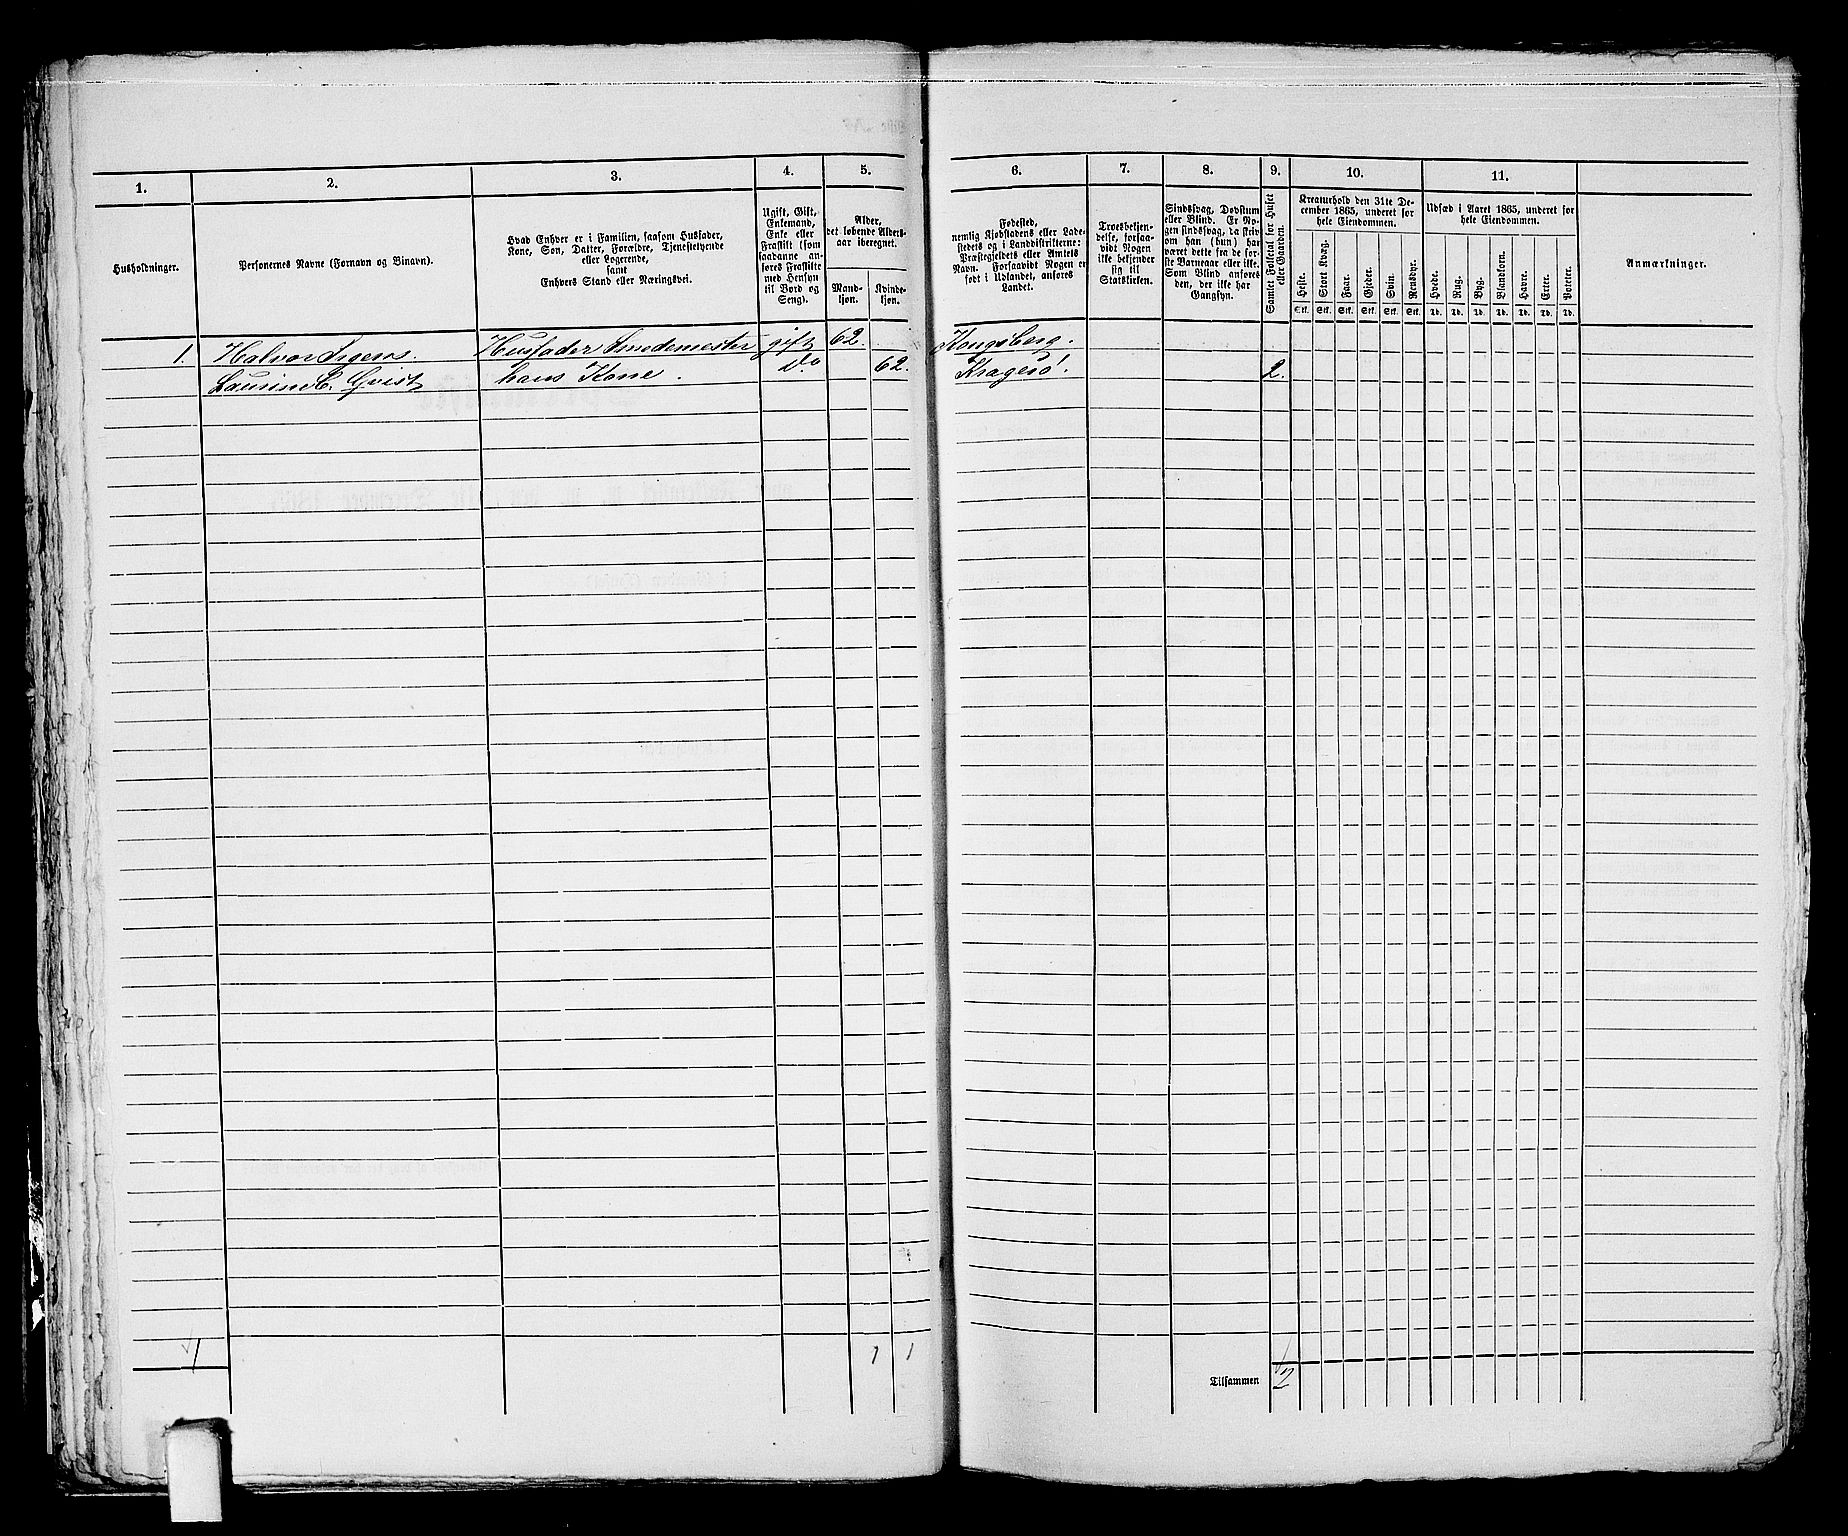 1.
2.
3.
4.
5.
6.
7.
8.
9.
10.
11.
Husholdninger.
Personernes Navne (Fornavn og Binavn).
Hvad Enhver er i Familien, saasom Husfader,
Kone, Søn, Datter, Forældre, Tjenestetyende
eller Logerende,
samt
Enhvers Stand eller Næringsvei.
Ugift, Gift,
Enkemand,
Enke eller
Fraskilt (som
saadanne an-
føres Fraskilte
med Hensyn
til Bord og
Seng).
Alder,
det løbende Alders-
aar iberegnet.
Mand-
kjøn.
Kvinde-
kjøn.
Fødested,
nemlig Kjøbstadens eller Lade-
stedets og i Landdistrikterne:
Præstegjeldets eller Amtets
Navn. Forsaavidt Nogen er
født i Udlandet, anføres
Landet.
Troesbekjen-
delse, forsaa-
vidt Nogen
ikke bekjender
sig til
Statskirken.
Sindssvag, Døvstum
eller Blind. Er No-
gen sindssvag, da skriv
om han (hun) har
været dette fra de før-
ste Barneaar eller ikke.
Som Blind anføres
den, der ikke har
Gangsyn.
Samlet Folketal for Huset
eller Gaarden.
Kreaturhold den 31te De-
cember 1865, underet for
hele Eiendommen.
Heste.
Stort Kvæg.
Faar.
Gjeder.
Svin.
Rensdyr.
Stk. Stk. Stk. Stk. Stk. Stk.
Udsæd i Aaret 1865, underet for
hele Eiendommen.
Hvede.
Rug.
Byg.
Blankorn.
Havre.
Erter.
Poteter.
Td. Td. Td. Td. Td. Td. Td.
Anmærkninger.
1. Halvor Husfader Smedemester gift 62. Kongsberg.
Laurine C. Qvist hans Kone. Do 62. Kragerø. 2.
1 1 1
Tilsammen 2